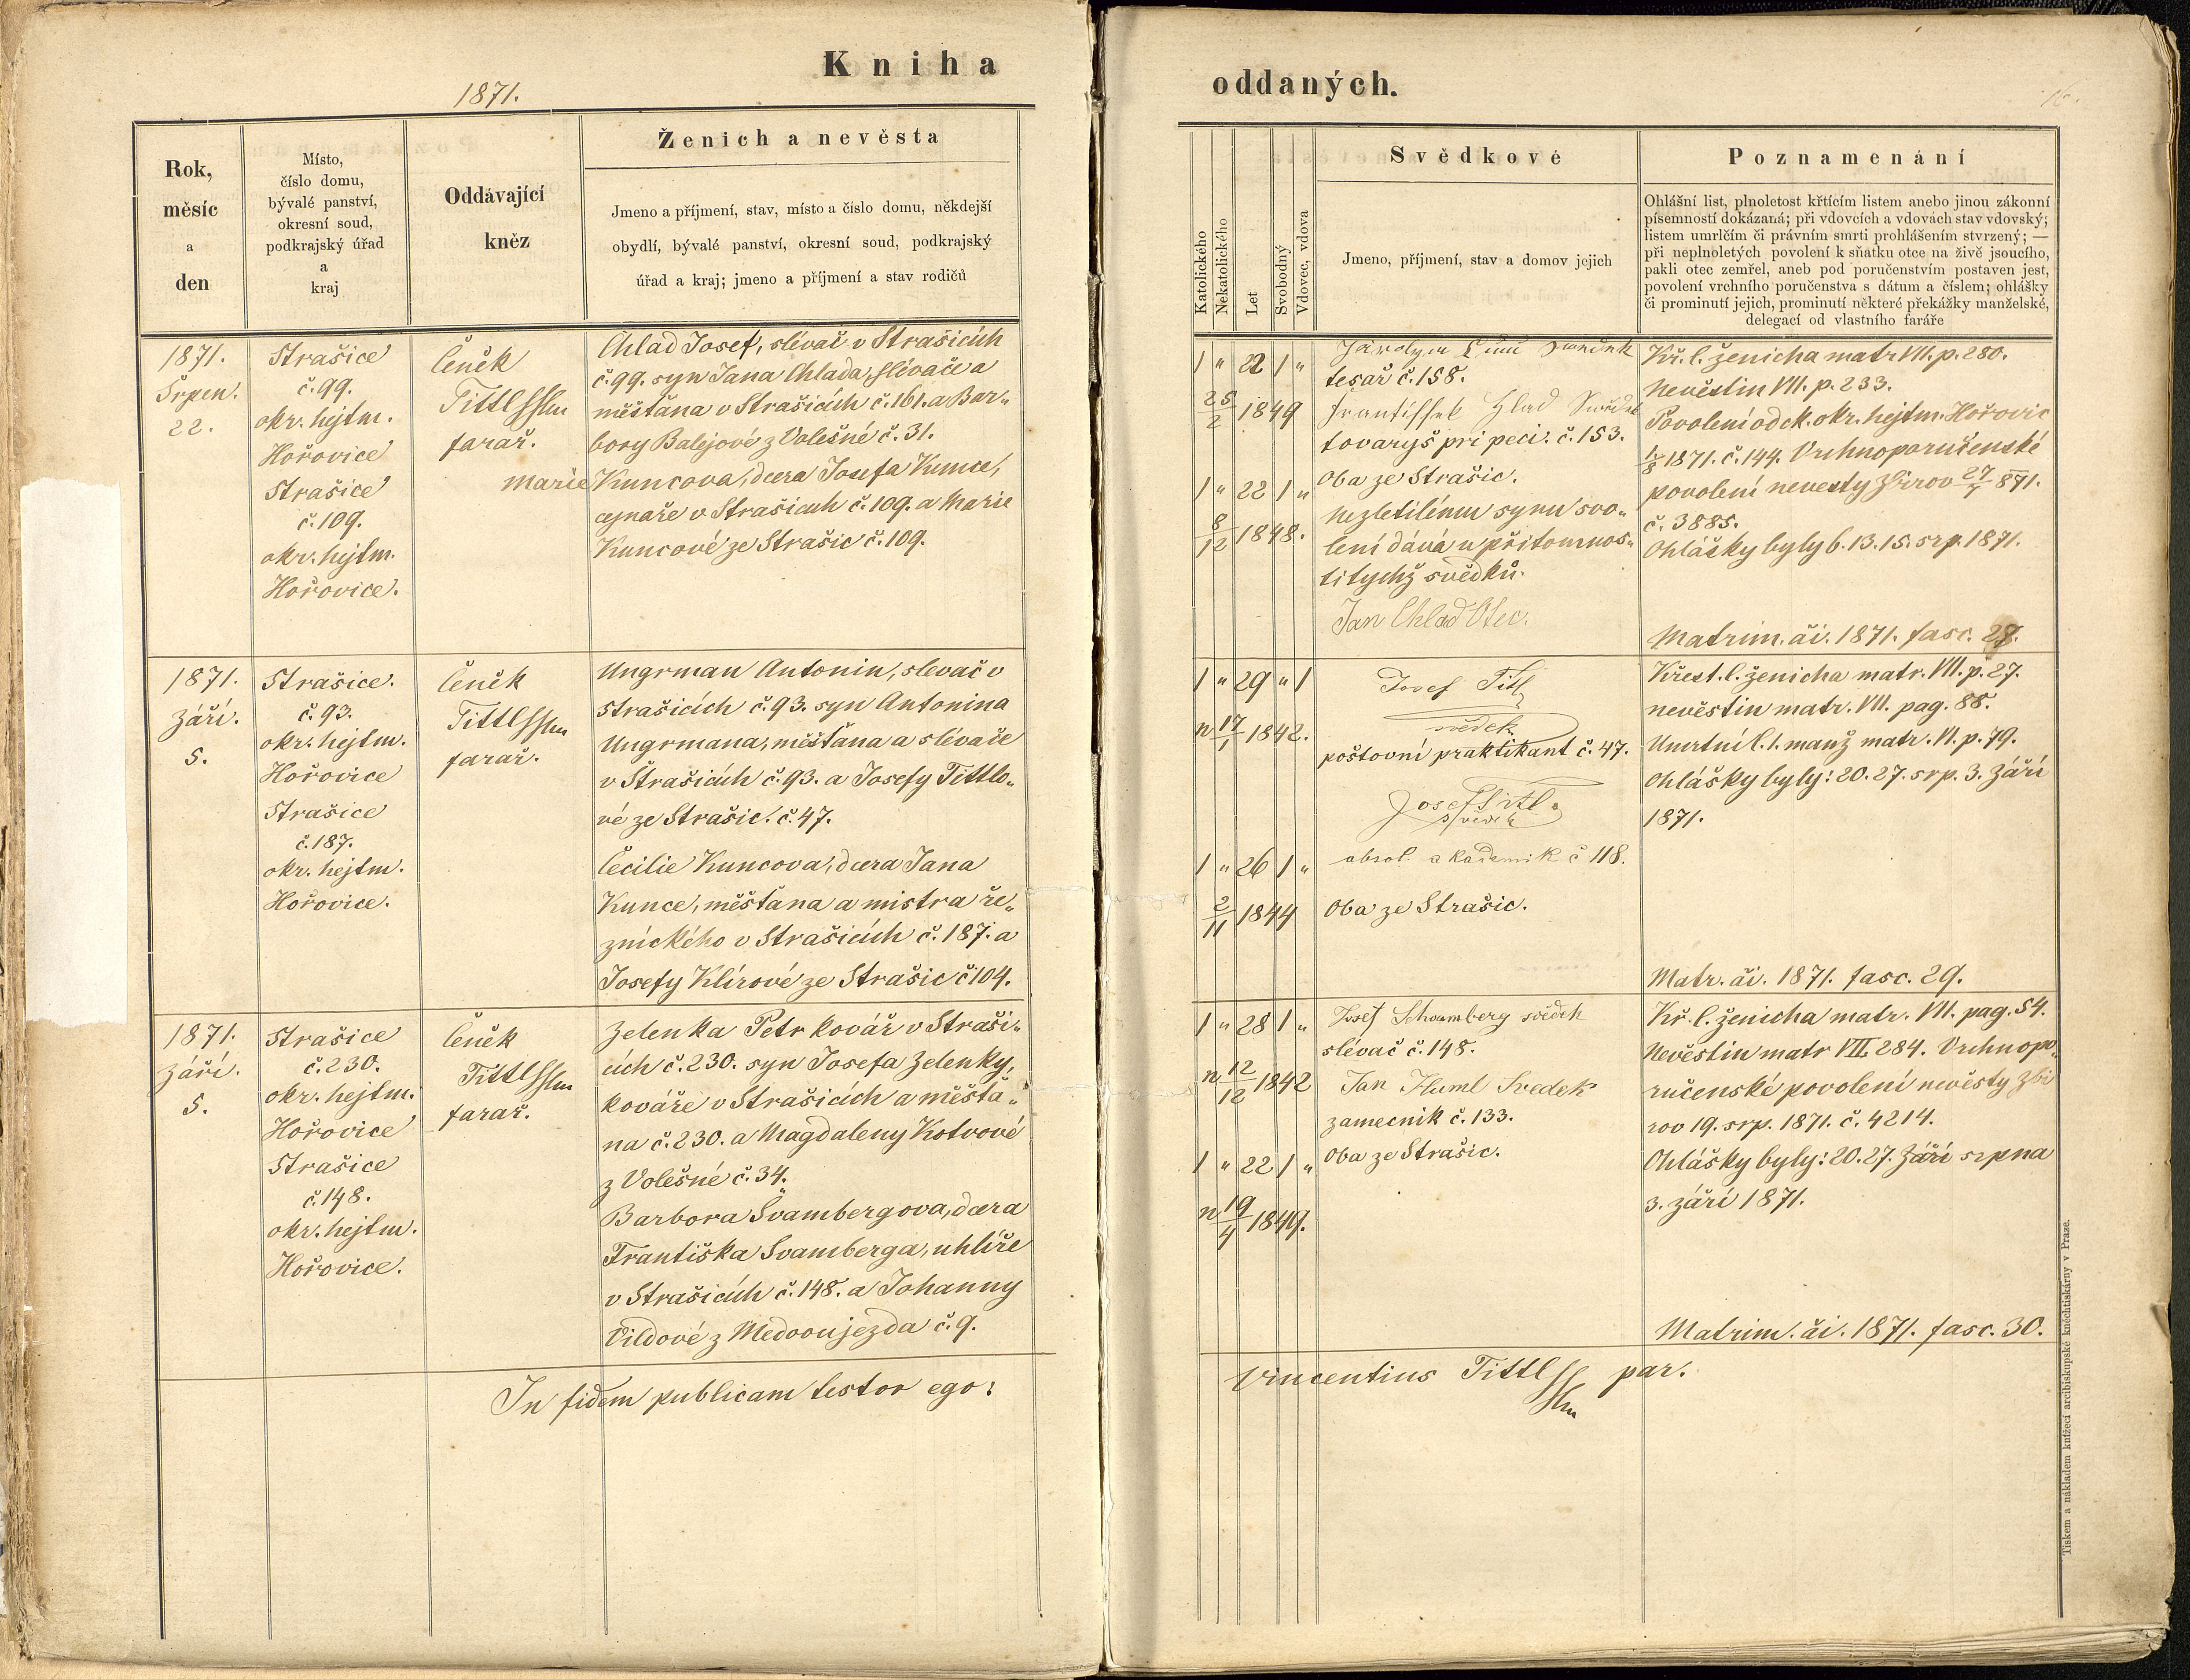 1871.
Kniha
Rok,
měsíc
a
den
Místo,
číslo domu,
bývalé panství,
okresní soud,
podkrajský úřad
a
kraj
Oddávající
kněz
Ženich a nevěsta
Jmeno a příjmení, stav, místo a číslo domu, někdejší
obydlí, bývalé panství, okresní soud, podkrajský
úřad a kraj; jmeno a příjmení a stav rodičů
1871.
Srpen.
22.
Strašice
č. 99.
okr. hejtm.
Hořovice
Strašice
č. 109.
okr. hejtm.
Hořovice.
Čeněk
Tittl
farař.
Chlad Josef, slévač v Strašicích
č. 99. syn Jana Chlada, slévače a
měšťana v Strašicích č. 161. a Bar„
bory Balejové z Volešné č. 31.
Marie Kuncova, dcera Josefa Kunce,
cejnaře v Strašicích č. 109. a Marie
Kuncové ze Strašic č. 109.
1871.
Září.
5.
Strašice.
č. 93.
okr. hejtm.
Hořovice
Strašice
č. 187.
okr. hejtm.
Hořovice.
Čeněk
Tittl
farař.
Ungrman Antonin, slevač v
Strašicích č. 93. syn Antonina
Ungrmana, měšťana a slévače
v Strašicích č. 93. a Josefy Tittlo„
vé ze Strašic. č. 47.
Cecilie Kuncova, dcera Jana
Kunce, měšťana a mistra ře„
znického v Strašicích č. 187. a
Josefy Klírové ze Strašic č 104.
1871.
Září.
5.
Strašice
č. 230.
okr. hejtm.
Hořovice
Strašice
č. 148.
okr. hejtm.
Hořovice.
Čeněk
Tittl
farař.
Zelenka Petr kovář v Straši„
cích č. 230. syn Josefa Zelenky,
kováře v Strašicích a měšťa„
na č. 230. a Magdaleny Kotvové
z Volešné č. 34.
Barbora Švambergova, dcera
Františka Švamberga, uhlíře
v Strašicích č. 148. a Johanny
Vildové z Medovujezda č. 9.
In fidem publicam testor ego:
oddaných.
16.
Katolického
Nekatolického
Let
Svobodný
Vdovec, vdova
Svědkové
Jmeno, příjmení, stav a domov jejich
Poznamenání
Ohlášní list, plnoletost křtícím listem anebo jinou zákonní
písemností dokázaná; při vdovcích a vdovách stav vdovský;
listem umrlčím či právním smrti prohlášením stvrzený; —
při neplnoletých povolení k sňatku otce na živě jsoucího,
pakli otec zemřel, aneb pod poručenstvím postaven jest,
povolení vrchního poručenstva s dátum a číslem; ohlášky
či prominutí jejich, prominutí některé překážky manželské,
delegací od vlastního faráře
1 „ 22 1 „
25/2 1849
1 „ 22 1 „
8/12 1848.
tesař č. 158.
Frantisсek Hlad
tovaryš při peci. č. 153.
Oba ze Strašic.
Nezletilému synu svo„
lení dává u přítomnos„
ti tychž svědků.
Jan Chlad Otec.
Kř. l. ženicha matr VII. p. 280.
Nevěstin VII. p. 233.
Povolení od ck. okr. hejtm. Hořovic
1/8 1871. č. 144. Vrchnoporučenské
povolení nevesty Zbirov 27/7 871.
č. 3885.
Ohlášky byly 6. 13. 15. srp. 1871.
Matrim. či. 1871. fasc. 28.
1 „ 29 „ 1
n 17/1 1842.
1 „ 26 1 „
2/11 1844
Josef Titl
svědek
poštovní praktikant č. 47.
Josef Titl
svědek
absol. akademik č 118.
Oba ze Strašic.
Křest. l. ženicha matr. VII. p. 27.
nevěstin matr. VII. pag. 88.
Umrtní l. 1. manž matr. VI. p. 79.
Ohlášky byly: 20. 27. srp. 3. Září
1871.
Matr. či. 1871. fasc. 29.
1 „ 28 1 „
n 12/12 1842
1 „ 22 1 „
n 19/4 1849.
Josef Schwamberg svědek
slévač č. 148.
Jan Huml Svedek
zamecnik č. 133.
Oba ze Strašic.
Kř. l. ženicha matr. VII. pag. 54.
Nevěstin matr VII. 284. Vrchnopo„
ručenské povolení nevěsty Zbi
rov 19. srp. 1871. č. 4214.
Ohlášky byly: 20. 27. Září srpna
3. září 1871.
Matrim. či. 1871. fasc. 30.
Vincentius Tittl par.
Tiskem a nákladem knížecí arcibiskupské knihtiskárny v Praze.